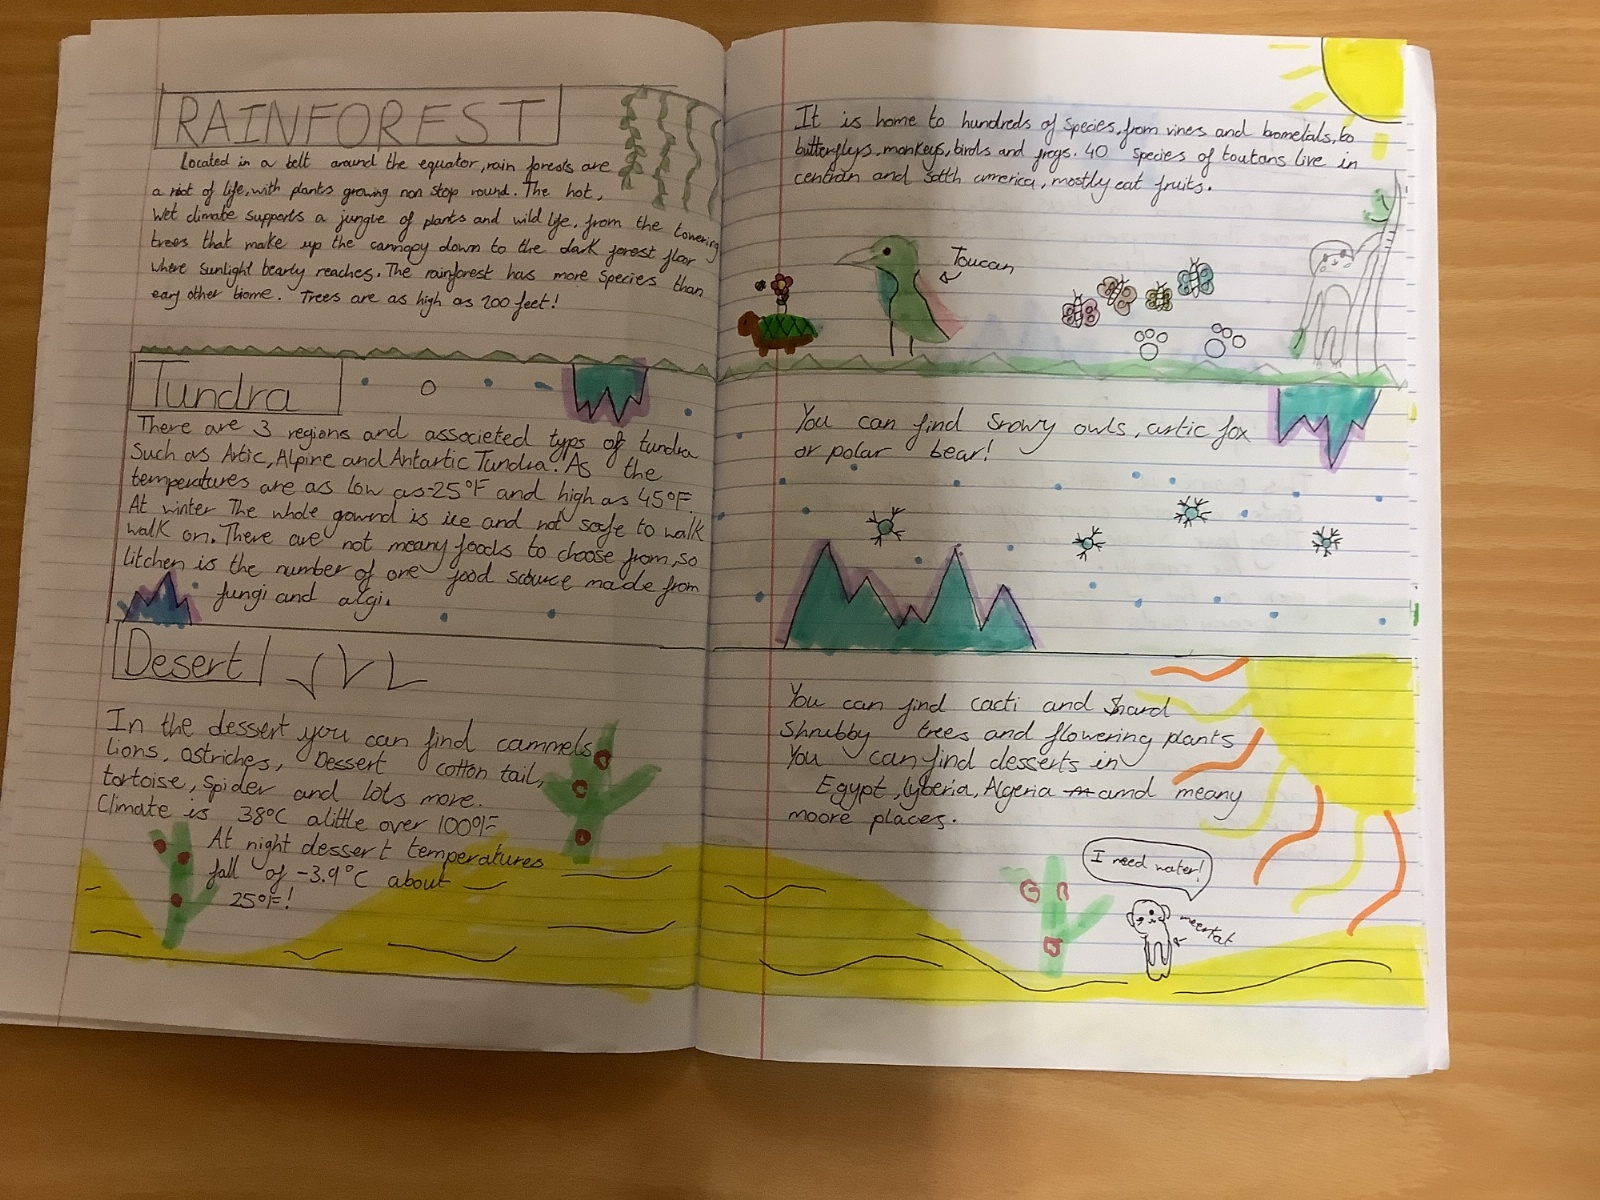 RAINFOREST
Located in a belt around the equator, rain forests are
a riot of life, with plants growing non stop round. The hot,
wet climate supports a jungle of plants and wild life, from the towering
trees that make up the cannopy down to the dark forest floor
where sunlight bearly reaches. The rainforest has more species than
eany other biome. Trees are as high as 200 feet!
It is home to hundreds of species, from vines and bromelads, to
butterflys, monkeys, birds and frogs. 40 species of toutans live in
centran and south america, mostly eat fruits.
Toucan
Tundra
There are 3 regions and associeted typs of tundra
Such as Artic, Alpine and Antartic Tundra. As the
temperatures are as low as -25°F and high as 45°F.
At winter The whole gownd is ice and not safe to walk
walk on. There are not meany foods to choose from, so
litchen is the number of one food source made from
fungi and algi.
You can find Snowy owls, artic fox
or polar bear!
Desert
In the dessert you can find cammels
lions, ostriches, Dessert cotton tail,
tortoise, spider and lots more.
Climate is 38°C alittle over 100°F
At night dessert temperatures
fall of -3.9°C about
25°F!
You can find cacti and hard
Shrubby trees and flowering plants
You can find desserts in
Egypt, lyberia, Algeria and meany
moore places.
I need water!
meerkat